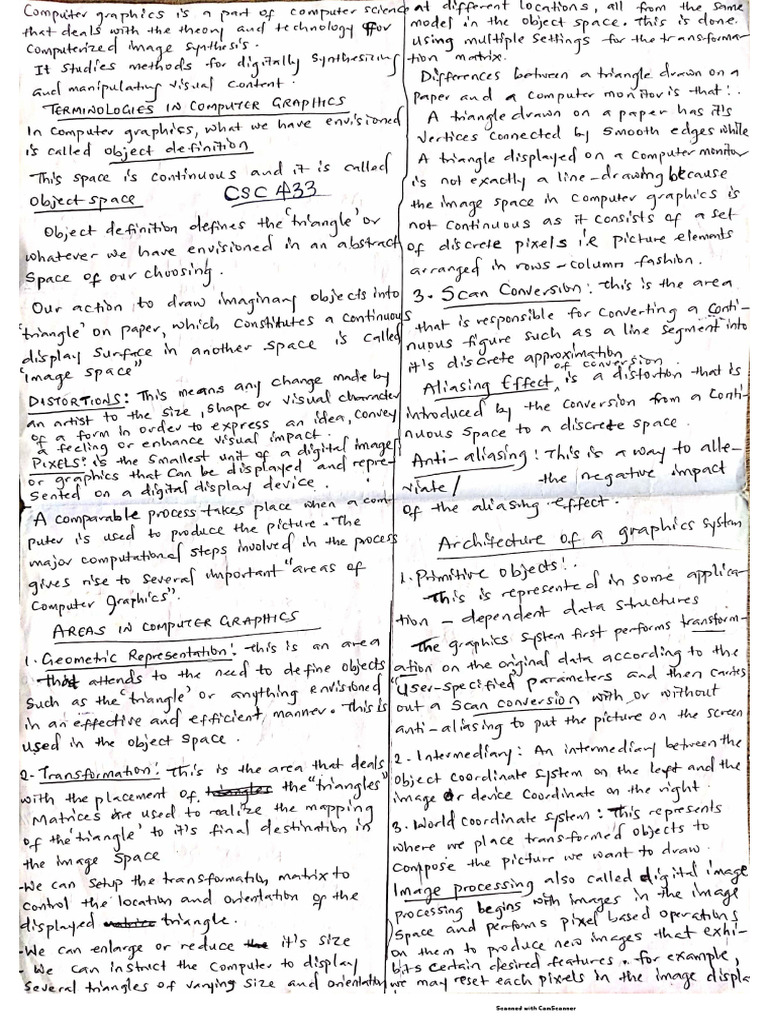 Computer graphics is a part of computer science
that deals with the theory and technology for
computerized image synthesis.
It studies methods for digitally synthesizing
and manipulating visual content.
TERMINOLOGIES IN COMPUTER GRAPHICS
In computer graphics, what we have envisioned
is called object definition
This space is continuous and it is called
Object space
CSC 433
Object definition defines the 'triangle' or
whatever we have envisioned in an abstract
Space of our choosing.
Our action to draw imaginary objects into
'triangle' on paper, which constitutes a continuous
display surface in another space is called
"image space"
DISTORTIONS: This means any change made by
an artist to the size, shape or visual character
of a form in order to express an idea, convey
a feeling or enhance visual impact.
PIXELS: is the smallest unit of a digital image
or graphics that can be displayed and repre-
sented on a digital display device.
A comparable process takes place when a com-
puter is used to produce the picture. The
major computational steps involved in the process
gives rise to several important "areas of
Computer graphics".
AREAS IN COMPUTER GRAPHICS
1. Geometric Representation: this is an area
that attends to the need to define objects
such as the 'triangle' or anything envisioned
in an effective and efficient manner. This is
used in the object space.
2- Transformation: This is the area that deals
with the placement of triangles the "triangles"
Matrices are used to realize the mapping
of the 'triangle' to it's final destination in
the image space
- We can setup the transformation matrix to
control the location and orientation of the
displayed matrice triangle.
- We can enlarge or reduce the it's size
- We can instruct the computer to display
several triangles of varying size and orientation
at different locations, all from the same
model in the object space. This is done
using multiple settings for the transforma-
tion matrix.
Differences between a triangle drawn on a
Paper and a computer monitor is that:.
A triangle drawn on a paper has it's
vertices connected by smooth edges while
A triangle displayed on a computer monitor
is not exactly a line-drawing because
the image space in computer graphics is
not continuous as it consists of a set
of discrete pixels i.e picture elements
arranged in rows-column fashion.
3. Scan Conversion: this is the area
that is responsible for converting a conti-
nuous figure such as a line segment into
it's discrete approximation.
of conversion
Aliasing Effect, is a distortion that is
introduced by the conversion from a conti-
nuous space to a discrete space.
Anti-aliasing: This is a way to alle-
viate/ the negative impact
of the aliasing effect.
Architecture of a graphics system
1. Primitive Objects:.
This is represented in some applica-
tion - dependent data structures
The graphics system first performs transform-
ation on the original data according to the
"User-specified parameters and then carries
out a scan conversion with or without
anti-aliasing to put the picture on the screen
2. Intermediary: An intermediary between the
object coordinate system on the left and the
image or device coordinate on the right.
3. World coordinate system: This represents
where we place transformed objects to
compose the picture we want to draw.
Image processing also called digital image
processing begins with images in the image
space and performs pixel based operations
on them to produce new images that exhi-
bits certain desired features. for example,
we may reset each pixels in the image displa
Scanned with CamScanner